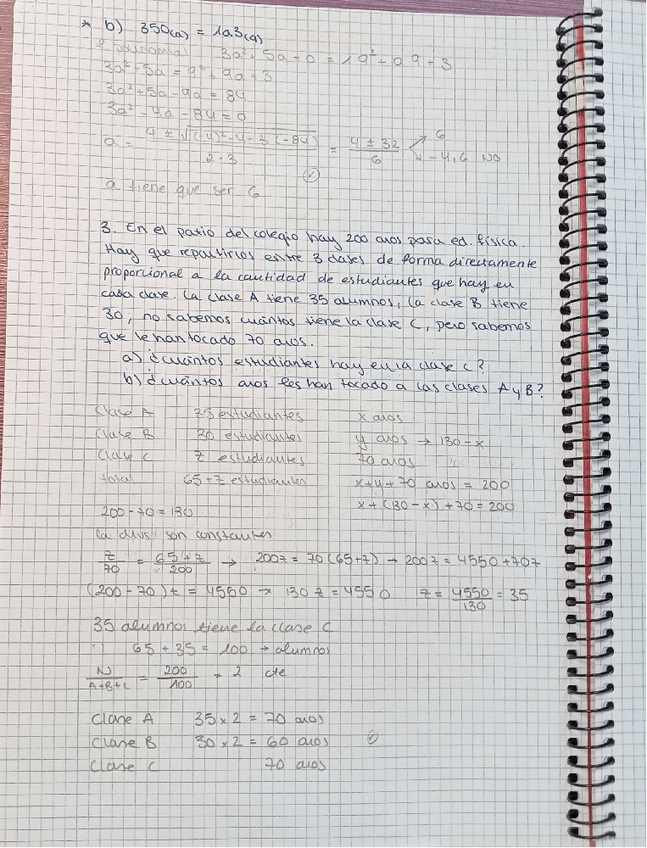 * b) 350(a) = 1a3(9)
polinomial 3a² + 5a + 0 = 1 9² + a 9 + 3
3a² + 5a = 9² + 9a + 3
3a² + 5a - 9a = 84
3a² - 4a - 84 = 0
a = 4 ± √((-4)² - 4·3·(-84)) / 2·3 = 4 ± 32 / 6 → 6
→ -4,6 NO
a tiene que ser 6
3. En el patio del colegio hay 200 aros para ed. física.
Hay que repartirlos entre 3 clases de forma directamente
proporcional a la cantidad de estudiantes que hay en
cada clase. La clase A tiene 35 alumnos, la clase B tiene
30, no sabemos cuántos tiene la clase C, pero sabemos
que le han tocado 70 aros.
a) ¿Cuántos estudiantes hay en la clase C?
b) ¿Cuántos aros les han tocado a las clases A y B?
Clase A 35 estudiantes x aros
Clase B 30 estudiantes y aros → 130 - x
Clase C z estudiantes 70 aros
total 65 + z estudiantes x + y + 70 aros = 200
200 - 70 = 130 x + (130 - x) + 70 = 200
la son constantes
z/70 = 65 + z/200 → 200z = 70(65 + z) → 200z = 4550 + 70z
(200 - 70)z = 4550 → 130z = 4550 z = 4550/130 = 35
35 alumnos tiene la clase C
65 + 35 = 100 → alumnos
N/A+B+C = 200/100 = 2 cte
Clase A 35 x 2 = 70 aros
Clase B 30 x 2 = 60 aros
Clase C 70 aros